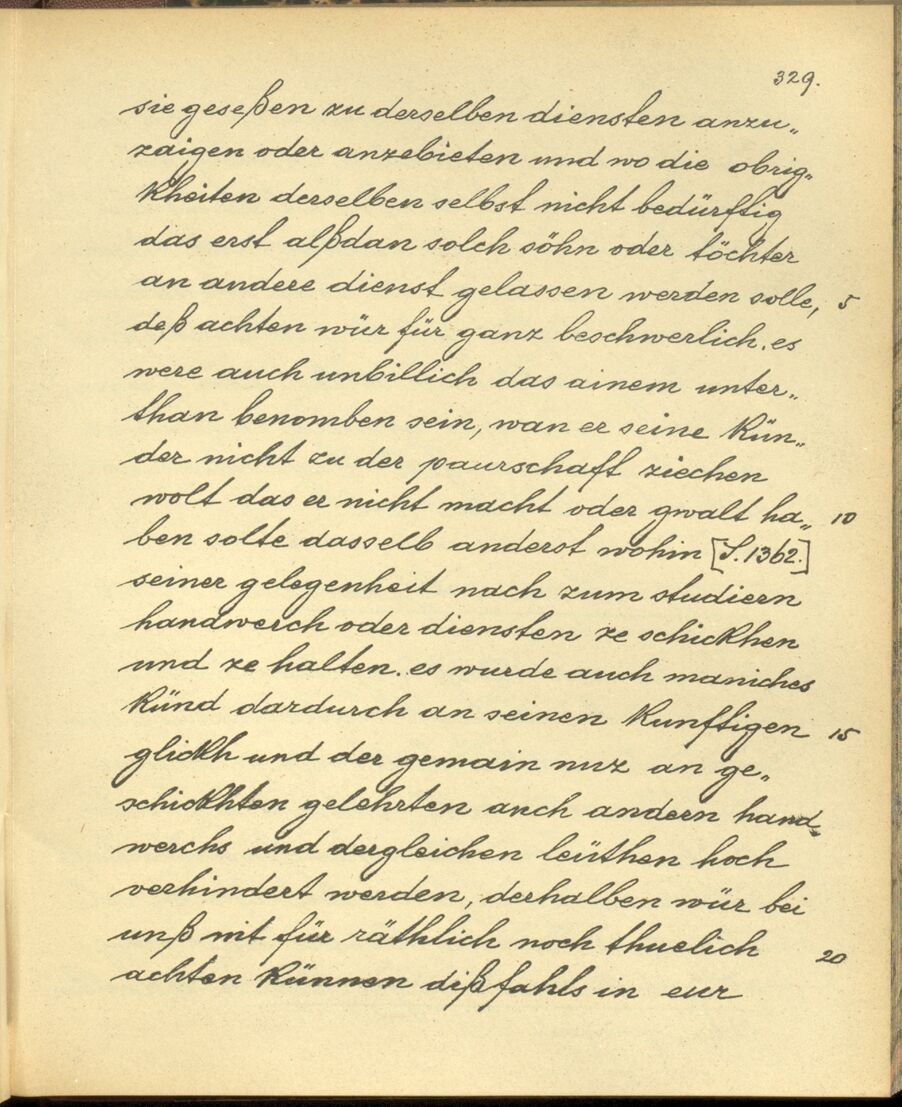 329.
sie geseßen zu derselben diensten anzu„
zaigen oder anzebieten und wo die obrig„
kheiten derselben selbst nicht bedürftig
das erst alßdan solch söhn oder töchter
an andere dienst gelassen werden solle, 5
deß achten wür für ganz beschwerlich. es
were auch unbillich das ainem unter„
than benomben sein, wan er seine kün„
der nicht zu der paurschaft ziechen
wolt das er nicht macht oder gwalt ha„ 10
ben solte dasselb anderst wohin [S. 1362.]
seiner gelegenheit nach zum studiern
handwerch oder diensten ze schickhen
und ze halten. es wurde auch maniches
künd dardurch an seinen kunftigen 15
glickh und der gemain nuz an ge„
schickhten gelehrten auch andern hand„
werchs und dergleichen leüthen hoch
verhindert werden, derhalben wür bei
unß nit für räthlich noch thuelich 20
achten künnen dißfahls in eur